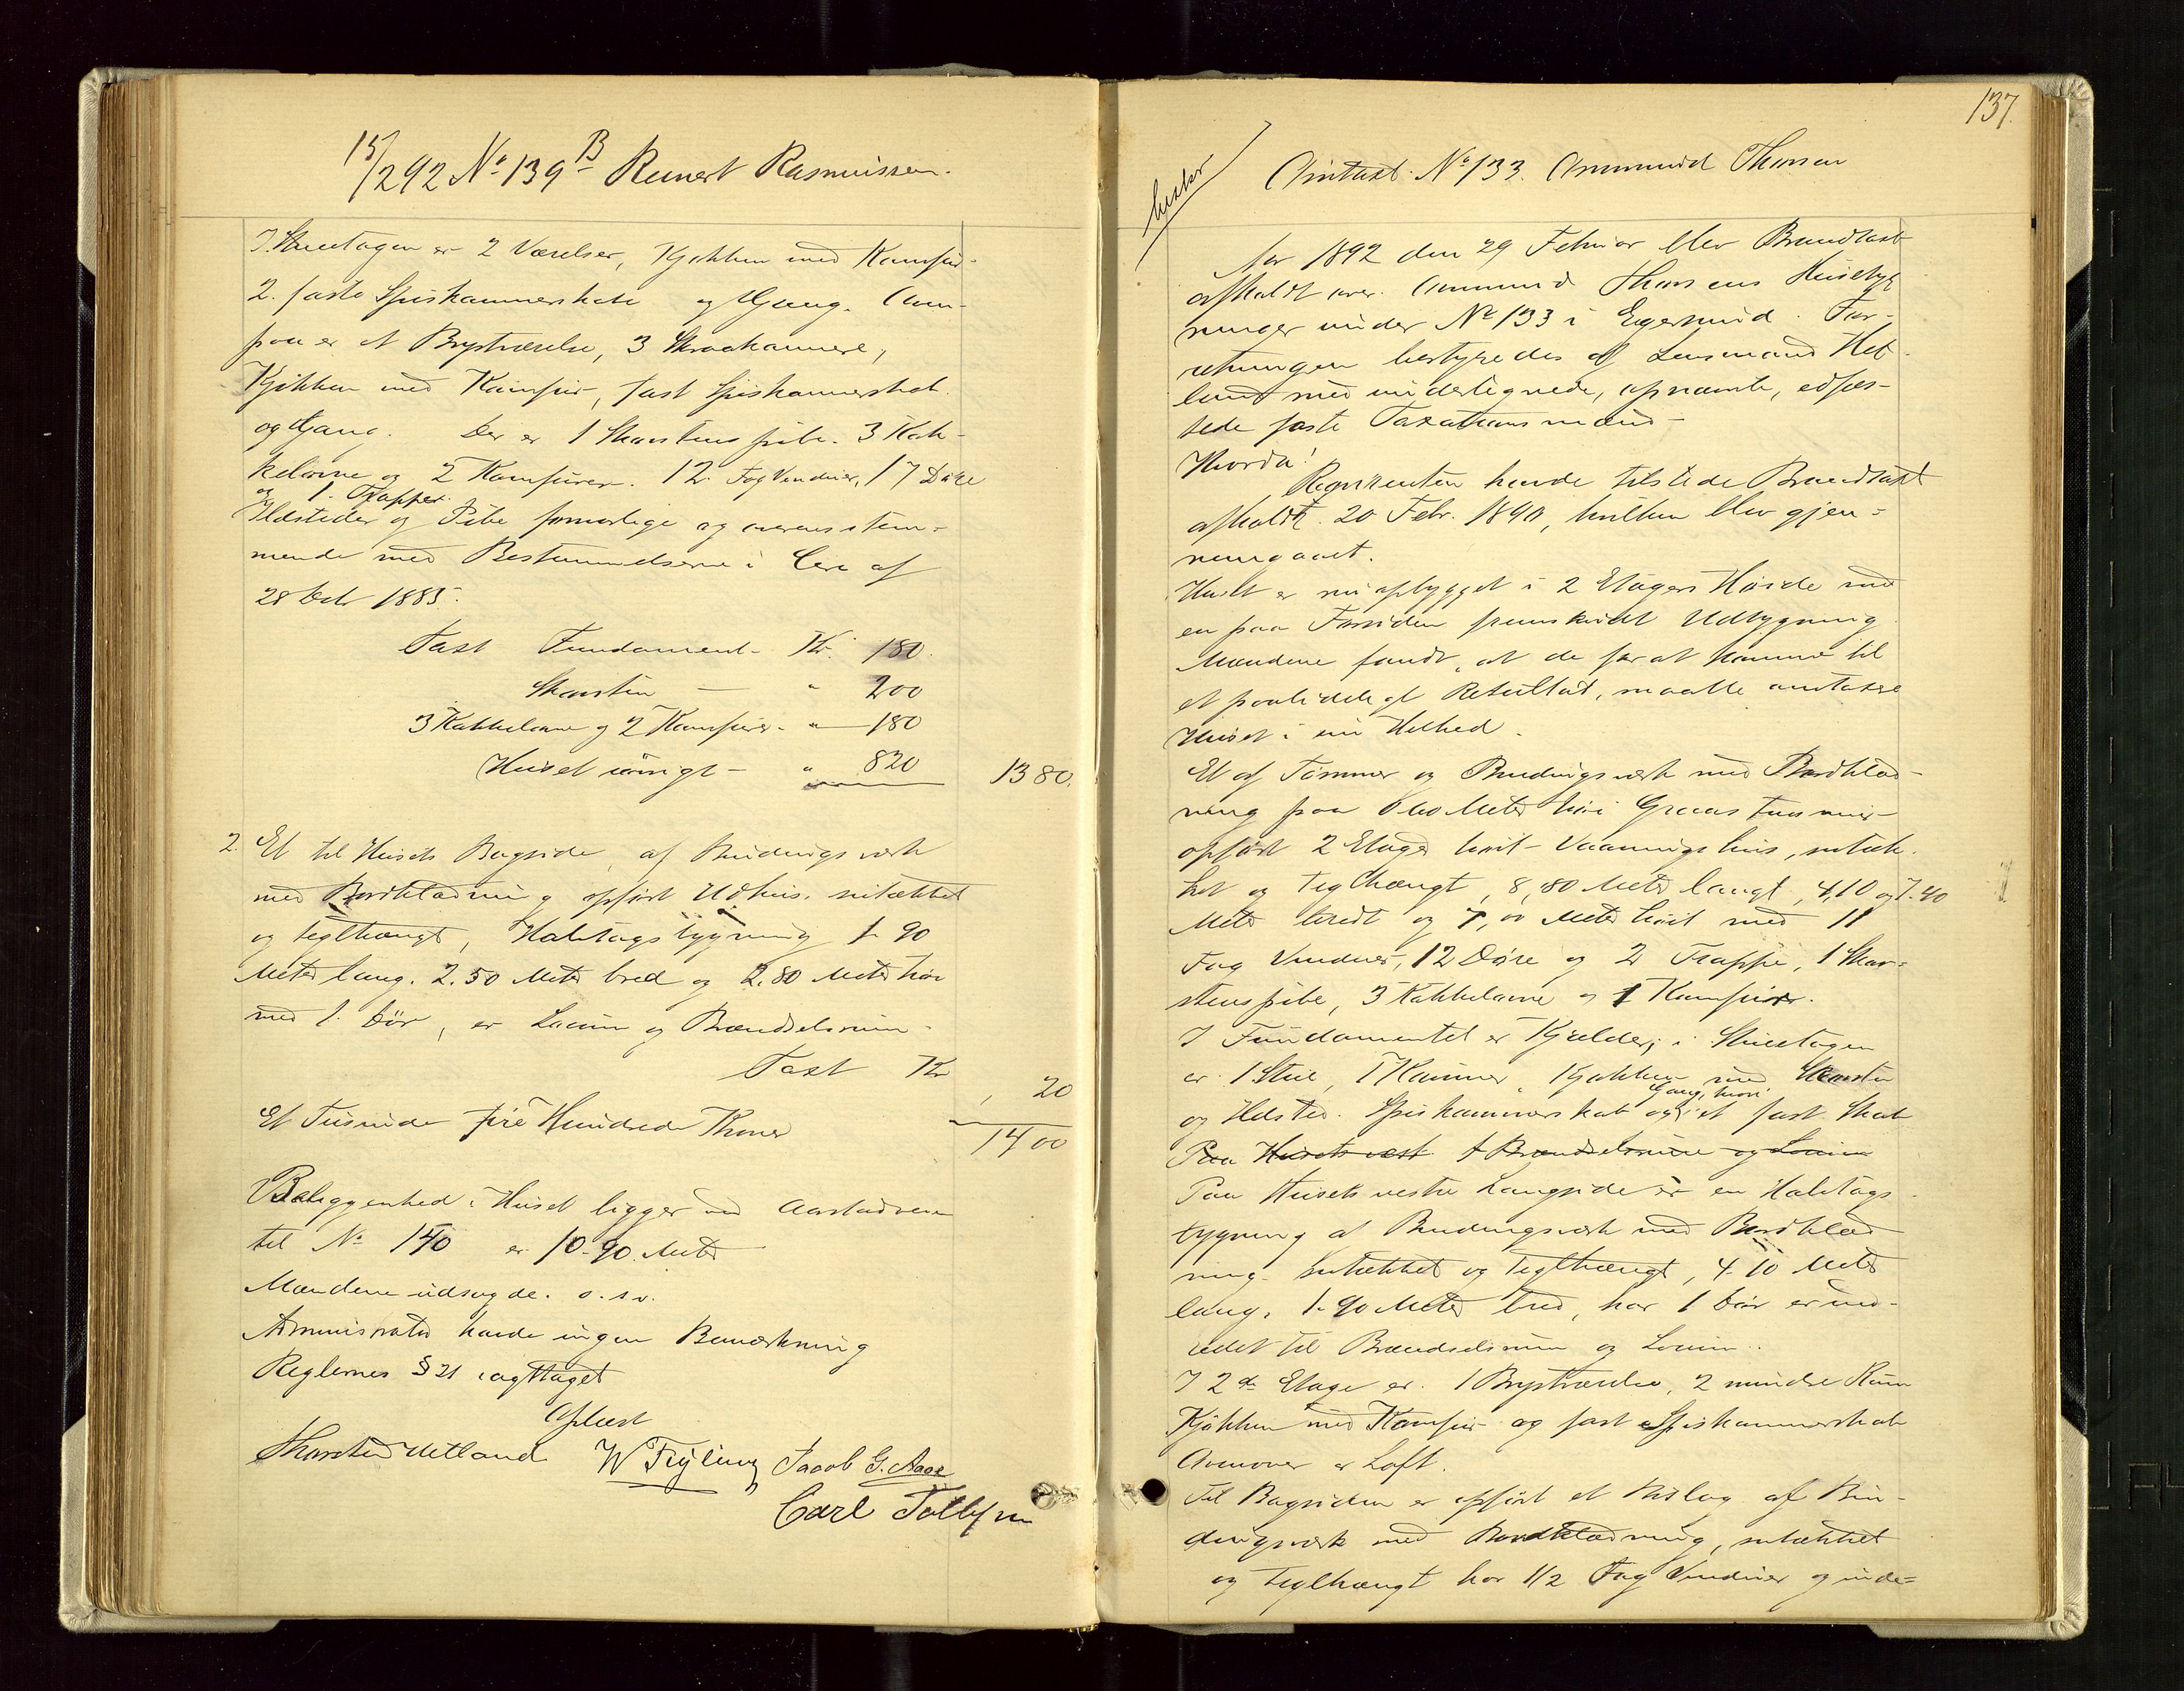 15/292 No 139 B Reinert Rasmussen.
I Stueetagen er 2 Værelser, Kjøkken med Komfur-
2. faste Spiskammerskabe og Gang. Oven-
paa er et Brystværelse, 3 Skraakammere,
Kjøkken med Komfur, fast Spiskammerskab
og Gang. Der er 1 Skorstenspibe. 3 Kak-
kelovne og 2 Komfurer. 12 Fag Vinduer, 17 Døre
og 1. Trapper.
Ildsteder og Pibe forsvarlige og overensstem-
mende med Bestemmelserne i Circ af
28 Octr 1885.
Taxt Fundament Kr. 180.
Skorsten — " 200
3 Kakkelovne og 2 Komfurer. " 180
Huset iøvrigt — " 820 1380.
2. Et til Husets Bagside af Bindingsværk
med Bordklædning opført Udhus. nitækket
og teglhængt, Halvtagsbygning 1.90
Meter lang. 2.50 Meter bred og 2.80 Meter høi
med 1. Dør, er Locum og Brændselsrum.
Taxt Kr , 20
Et Tusinde fire Hundrede Kroner 1400
Beliggenhed: Huset ligger ved Aarstadveien
til No 140 er 10.90. Meter
Mændene udsagde. o.s.v.
Administrator havde ingen Bemærkning
Reglernes § 21 iagttaget
Oplæst
Thorsten Hetland W Feyling Jacob G. Aase
Carl Tollefsen
137.
Omtaxt. No 133. Ommund Thorsen
Aar 1892 den 29 Februar blev Brandtaxt
afholdt over Ommund Thorsens Husebyg
ninger under No 133 i Egersund. For-
retningen bestyredes af Lensmand Het-
land med undertegnede, opnævnte, edfæs-
tede faste Taxationsmænd-
Hvorda!
Rekvirenten havde tilstede Brandtaxt
afholdt 20 Febr. 1890, hvilken blev gjen-
nemgaaet.
Huset er nu opbygget i 2 Etagers Høide med
en paa Forsiden fremskudt Udbygning
Mændene fandt, at de for at komme til
et paalideligt Resultat, maatte omtaxere
Huset i sin Helhed.
Et af Tømmer og Bindingsværk med Bordklæd-
ning paa Meter høi Graastensmur
opført 2 Etager høit Vaaningshus, sutæk-
ket og teglhængt, 8,80 Meter langt, 4,10 og 7.40
Meter bredt og 7,00 Meter høit med 11
Fag Vinduer, 12 Døre og 2 Trapper, 1 Skor-
stenspibe, 3 Kakkelovne og 1 Komfur.
I Fundamentet er Kjælder; i Stueetagen
er 1 Stue, 1 Kammer, Kjøkken med Skorsten
og Ildsted. Spiskammerskab og Gang, hvori et fast Skab
Paa Husets vest Brændselsrum og Locum
Paa Husets vestre Langside er en Halvtags
bygning af Bindingsværk med Bordklæd
ning. sutækket og teglhængt, 4.10 Meter
lang, 1.90 Meter bred, har 1 Dør er ind-
redet til Brændselsrum og Locum.
I 2den Etage er 1 Brystværelse, 2 mindre Rum
Kjøkken med Komfur og fast Spiskammerskab
Ovenover er Loft.
Til Bagsiden er opført et Bislag af Bin-
dingsværk med Bordklædning, sutækket
og teglhængt har 1/2 Fag Vinduer og inde-